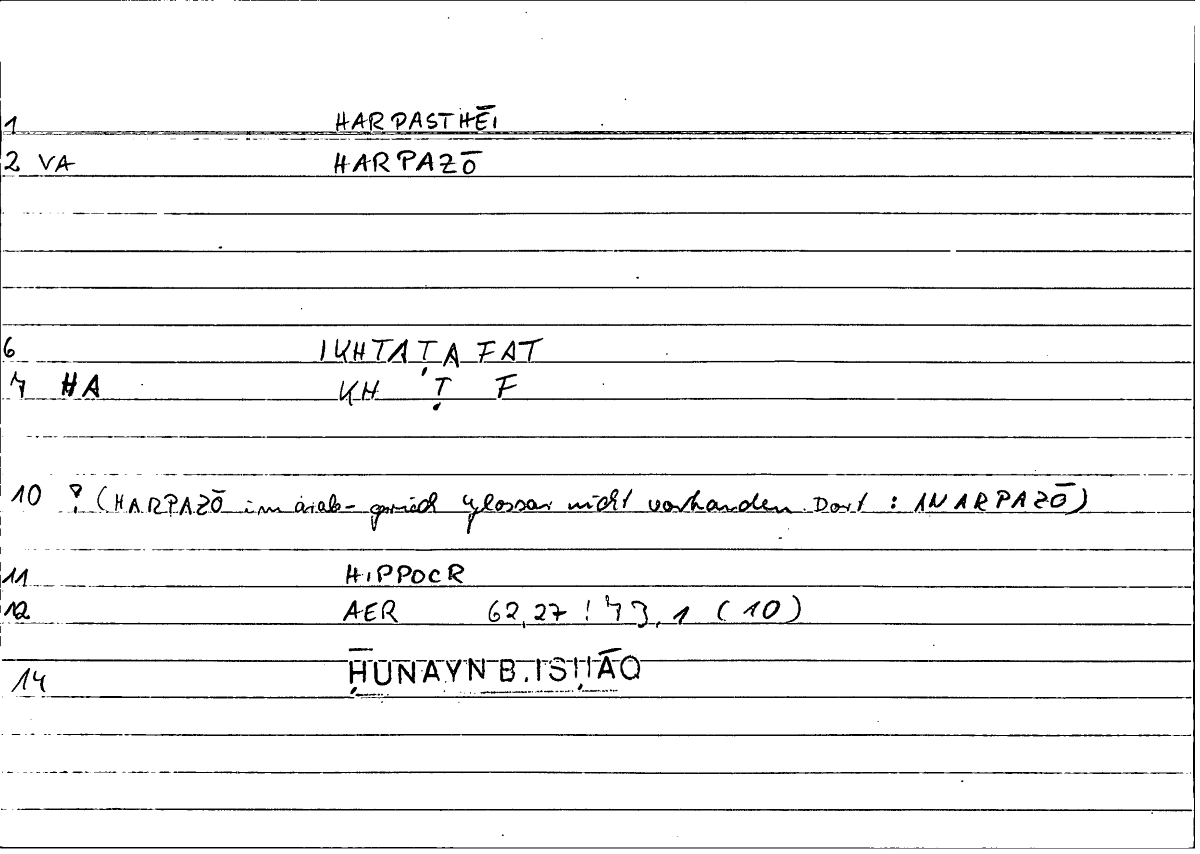 1 HARPASTHĒI
2 VA HARPAZŌ
6 IKHTAṬAFAT
7 HA KH Ṭ F
10 ? (HARPAZŌ im arab-griech Glossar nicht vorhanden. Dort : ANARPAZŌ)
11 HIPPOCR
12 AER 62,27 ! 73,1 (10)
14 ḤUNAYN B. ISḤĀQ